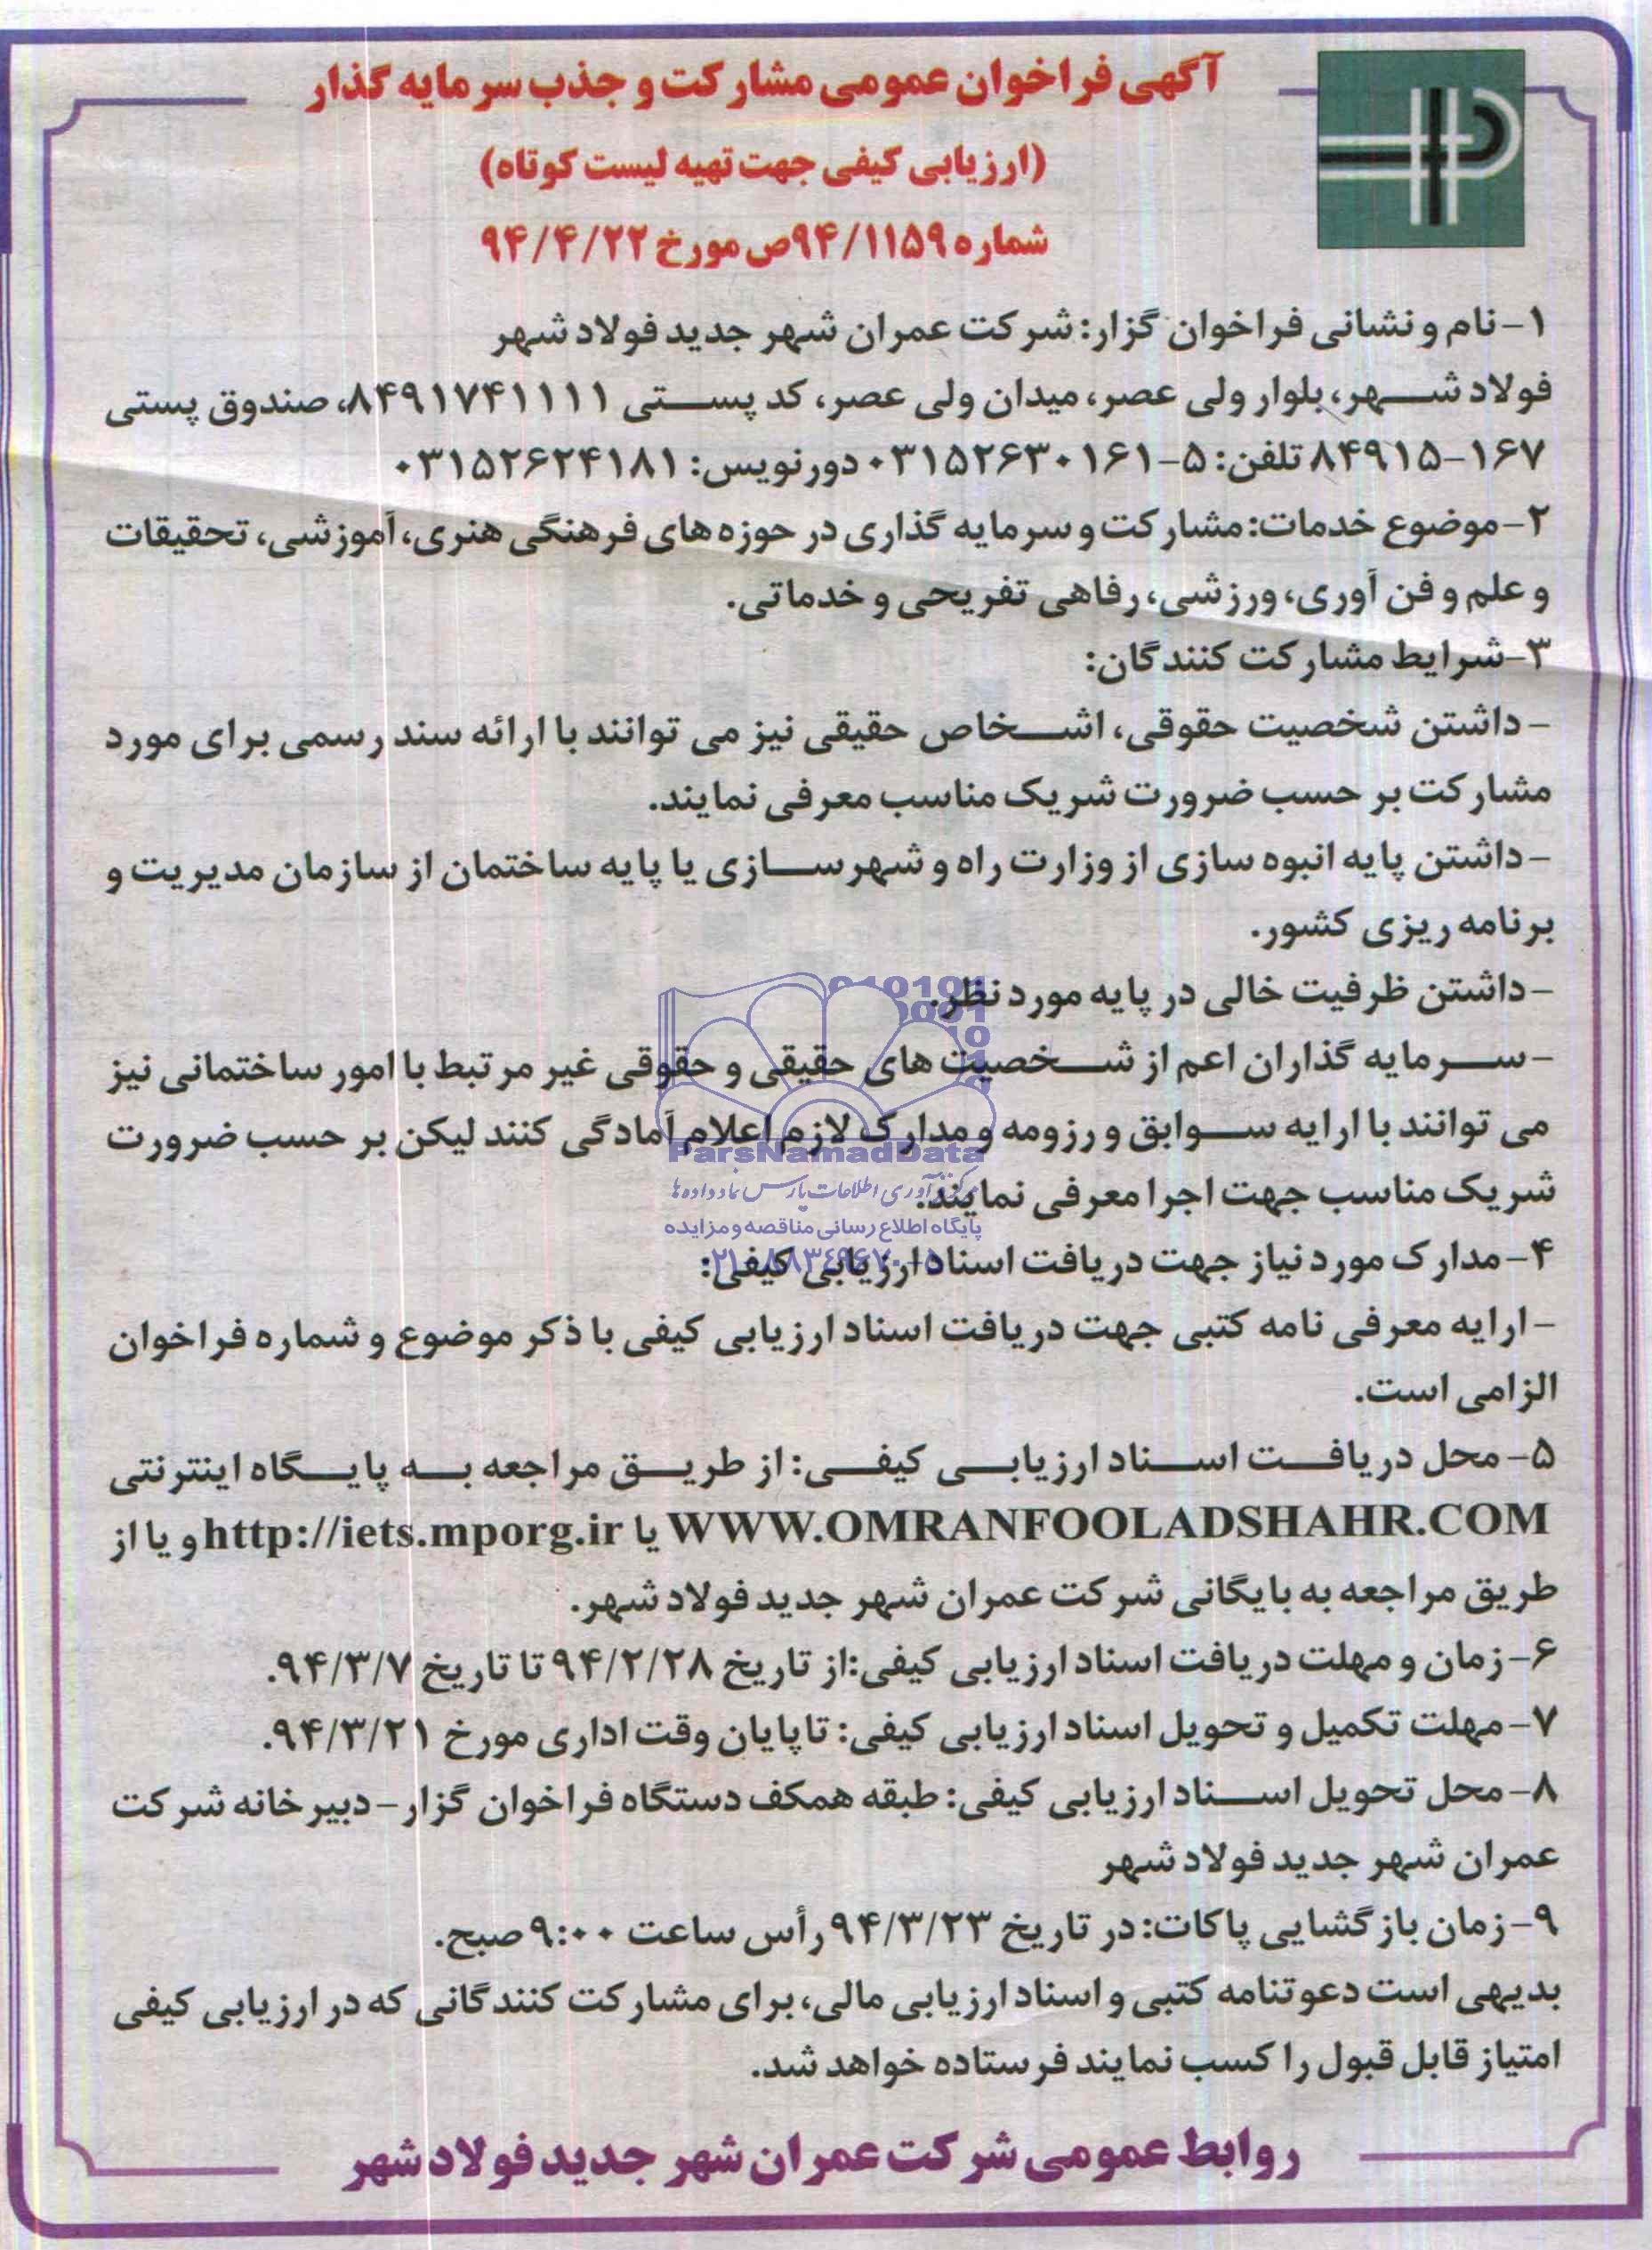 آگهی فراخوان عمومی مشارکت و جذب سرمایه گذار
(ارزیابی کیفی جهت تهیه لیست کوتاه)
شماره ۹۴/۱۱۵۹ص مورخ ۹۴/۴/۲۲
۱- نام و نشانی فراخوان گزار: شرکت عمران شهر جدید فولاد شهر
فولاد شهر، بلوار ولی عصر، میدان ولی عصر، کد پستی ۸۴۹۱۷۴۱۱۱۱، صندوق پستی
۸۴۹۱۵-۱۶۷ تلفن: ۵-۰۳۱۵۲۶۳۰۱۶۱ دورنویس: ۰۳۱۵۲۶۲۴۱۸۱
۲- موضوع خدمات: مشارکت و سرمایه گذاری در حوزه های فرهنگی هنری، آموزشی، تحقیقات
و علم و فن آوری، ورزشی، رفاهی تفریحی و خدماتی.
۳- شرایط مشارکت کنندگان:
- داشتن شخصیت حقوقی، اشخاص حقیقی نیز می توانند با ارائه سند رسمی برای مورد
مشارکت بر حسب ضرورت شریک مناسب معرفی نمایند.
- داشتن پایه انبوه سازی از وزارت راه و شهرسازی یا پایه ساختمان از سازمان مدیریت و
برنامه ریزی کشور.
- داشتن ظرفیت خالی در پایه مورد نظر.
- سرمایه گذاران اعم از شخصیت های حقیقی و حقوقی غیر مرتبط با امور ساختمانی نیز
می توانند با ارایه سوابق و رزومه و مدارک لازم اعلام آمادگی کنند لیکن بر حسب ضرورت
شریک مناسب جهت اجرا معرفی نمایند.
۴- مدارک مورد نیاز جهت دریافت اسناد ارزیابی کیفی:
- ارایه معرفی نامه کتبی جهت دریافت اسناد ارزیابی کیفی با ذکر موضوع و شماره فراخوان
الزامی است.
۵- محل دریافت اسناد ارزیابی کیفی: از طریق مراجعه به پایگاه اینترنتی
WWW.OMRANFOOLADSHAHR.COM یا http://iets.mporg.ir و یا از
طریق مراجعه به بایگانی شرکت عمران شهر جدید فولاد شهر.
۶- زمان و مهلت دریافت اسناد ارزیابی کیفی: از تاریخ ۹۴/۲/۲۸ تا تاریخ ۹۴/۳/۷.
۷- مهلت تکمیل و تحویل اسناد ارزیابی کیفی: تا پایان وقت اداری مورخ ۹۴/۳/۲۱.
۸- محل تحویل اسناد ارزیابی کیفی: طبقه همکف دستگاه فراخوان گزار - دبیرخانه شرکت
عمران شهر جدید فولاد شهر
۹- زمان بازگشایی پاکات: در تاریخ ۹۴/۳/۲۳ رأس ساعت ۹:۰۰ صبح.
بدیهی است دعوتنامه کتبی و اسناد ارزیابی مالی، برای مشارکت کنندگانی که در ارزیابی کیفی
امتیاز قابل قبول را کسب نمایند فرستاده خواهد شد.
روابط عمومی شرکت عمران شهر جدید فولاد شهر
ParsNamadData
پایگاه اطلاع رسانی مناقصه و مزایده